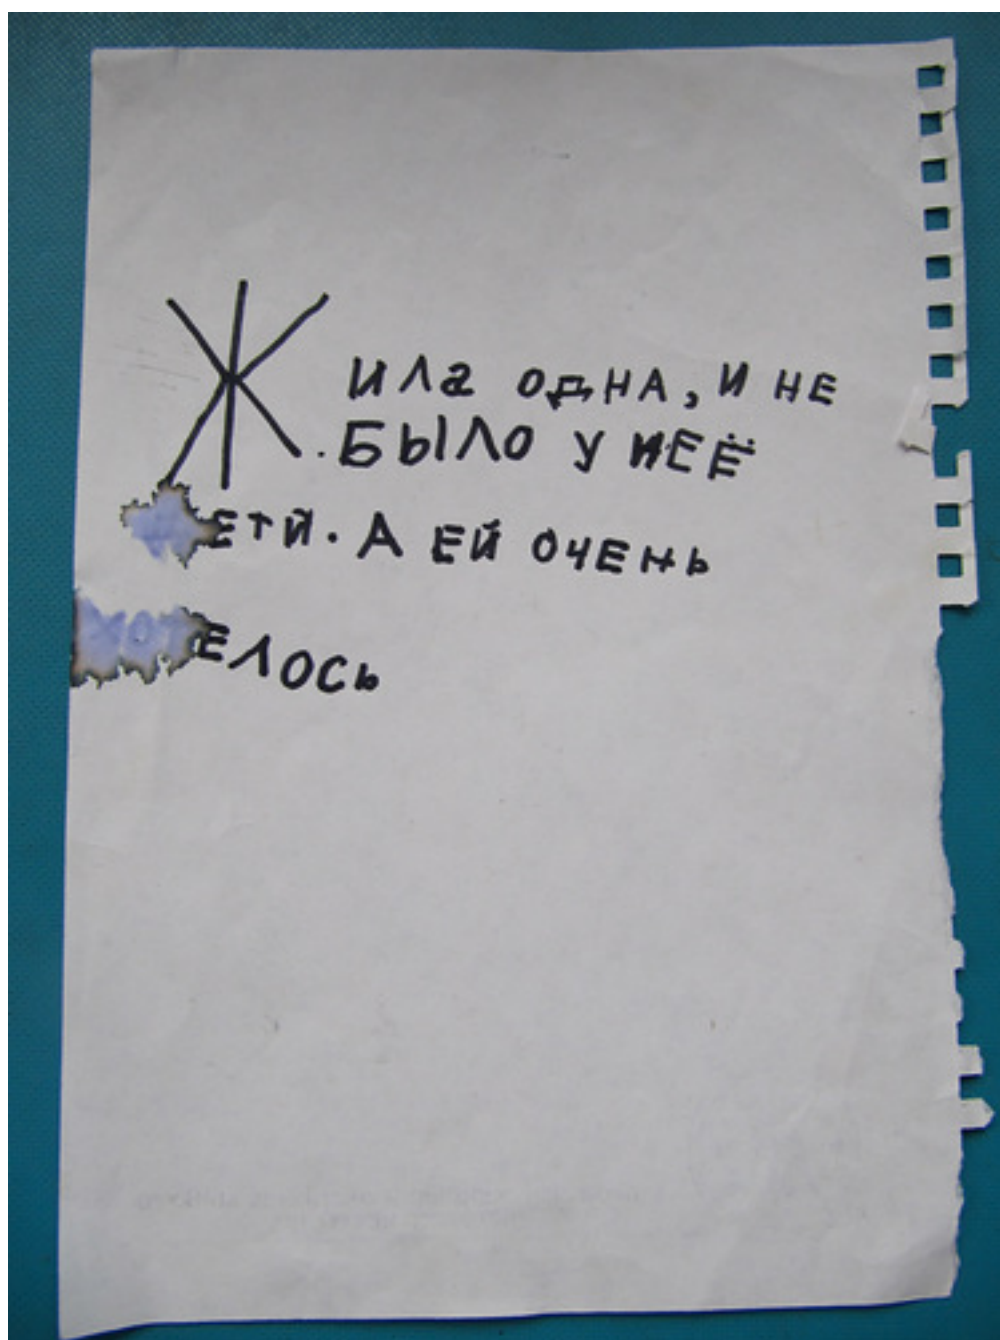 Жила одна, и не
было у неё
ети. А ей очень
хотелось